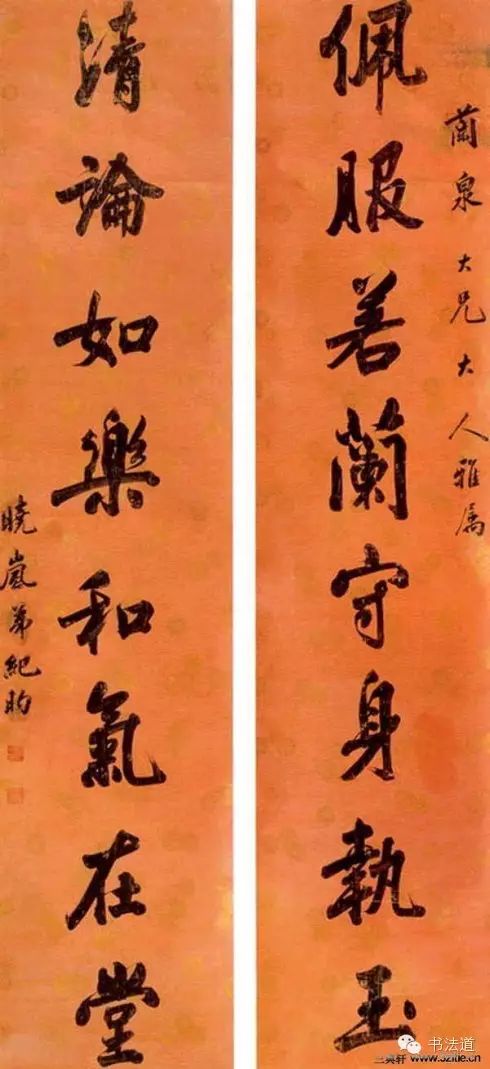 蘭泉大兄大人雅属
佩服若蘭守身執玉
清論如樂和氣在堂
曉嵐弟紀昀
书法道